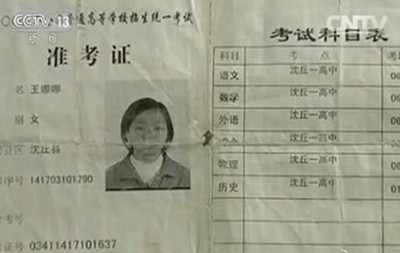 CCTV 13
新闻
CNTV
普通高等学校招生统一考试
准考证
名 王娜娜
别 女
县区 沈丘县
序号 141703101790
考号
证号 03411417101637
考试科目表
科目 考点
语文 沈丘一高中
数学 沈丘一高中
外语 沈丘一高中
沈丘一高中
物理 沈丘一高中
历史 沈丘一高中